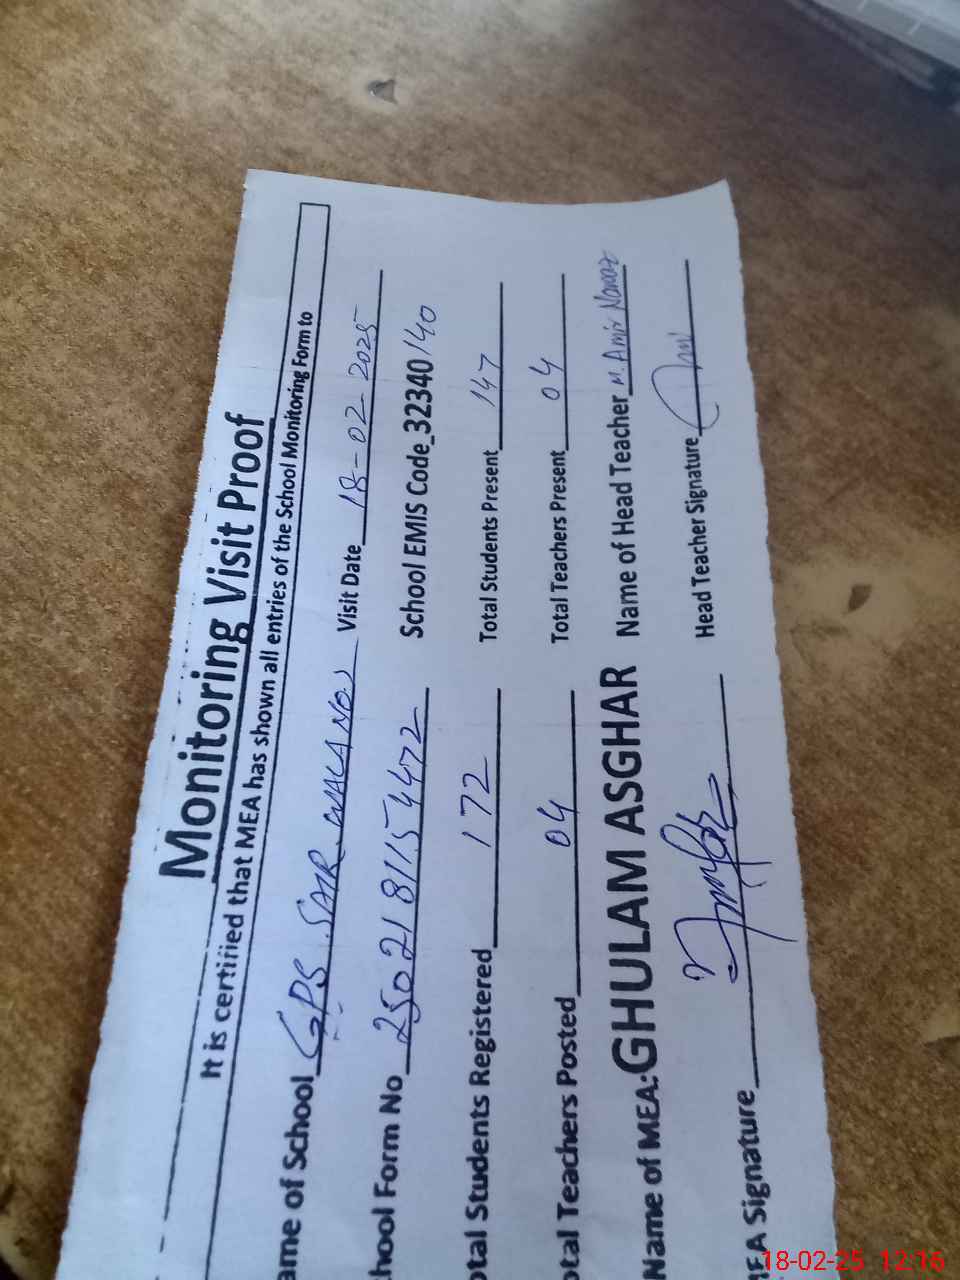 Monitoring Visit Proof
It is certified that MEA has shown all entries of the School Monitoring Form to
ame of School GPS SAHR WALA NO.2 Visit Date 18-02-2025
hool Form No 2502181154472 School EMIS Code_32340140
otal Students Registered 172 Total Students Present 147
otal Teachers Posted 04 Total Teachers Present 04
Name of MEA:GHULAM ASGHAR Name of Head Teacher M. Amir Nawaz
EA Signature Head Teacher Signature
18-02-25 12:16